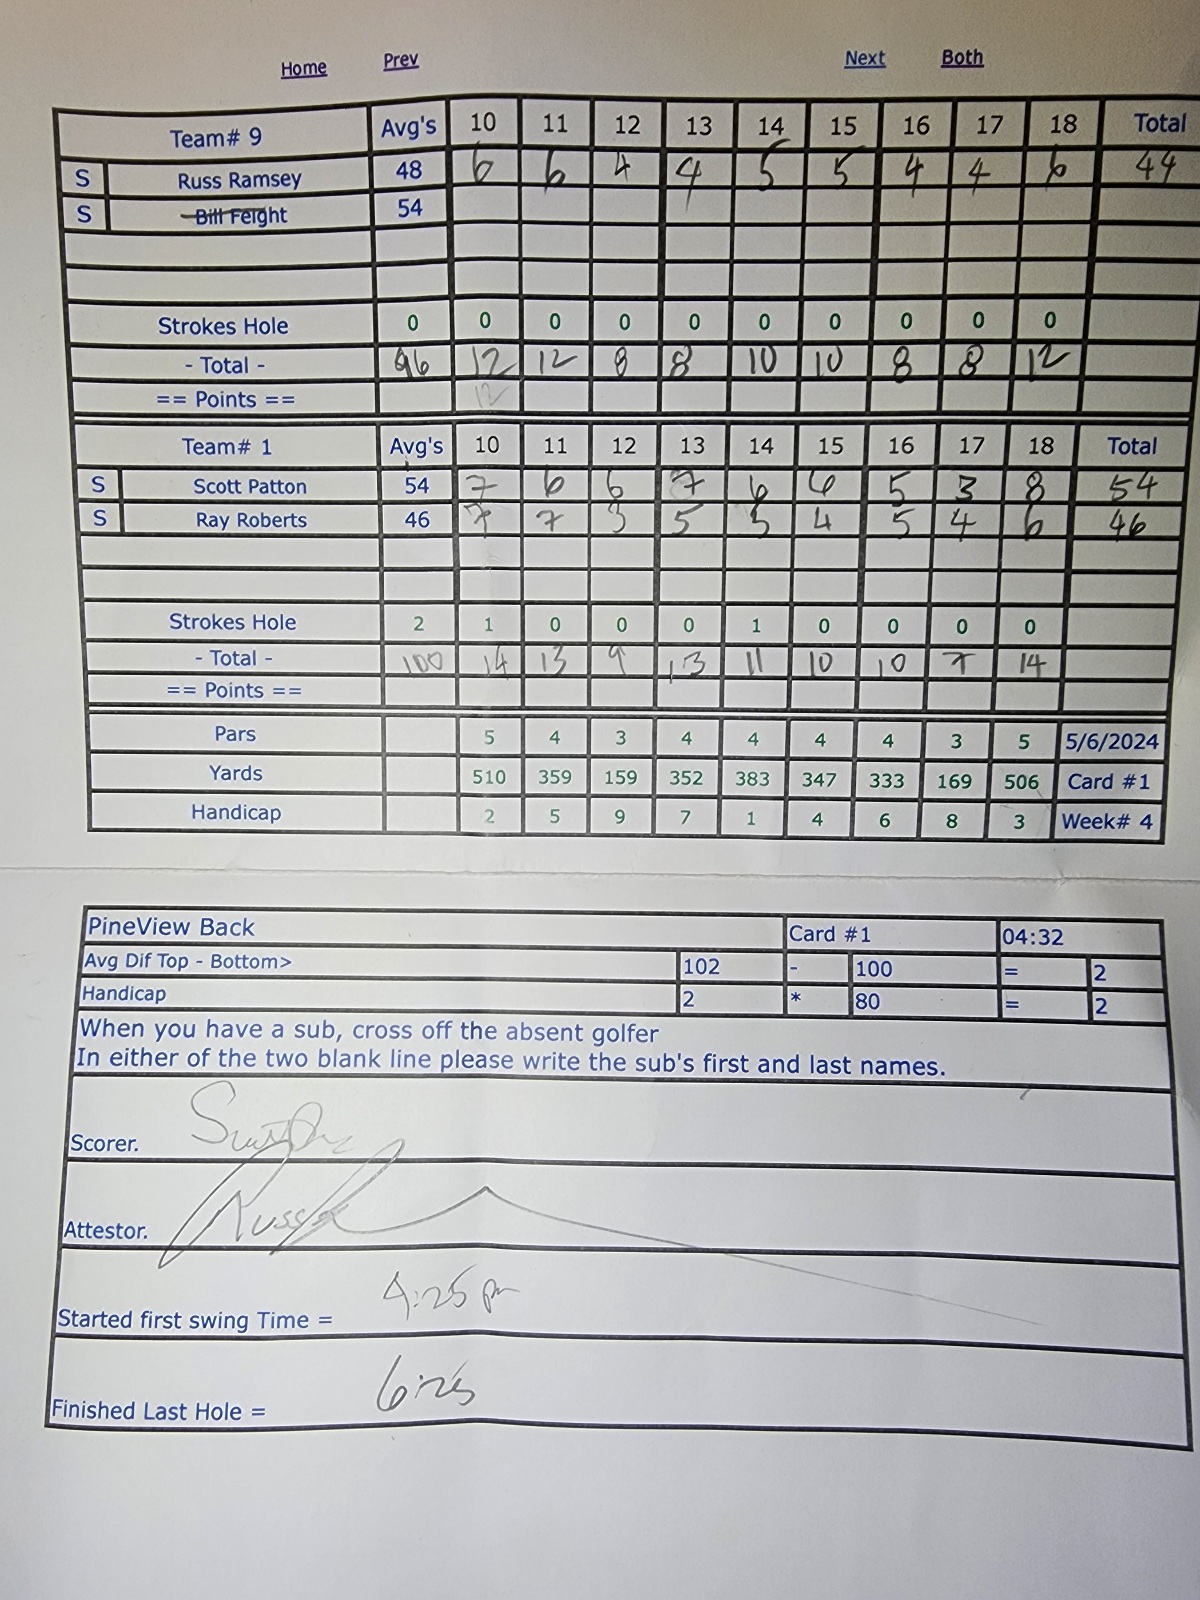 Home Prev Next Both
Team# 9 Avg's 10 11 12 13 14 15 16 17 18 Total
S Russ Ramsey 48 6 6 4 4 5 5 4 4 6 44
S Bill Feight 54
Strokes Hole 0 0 0 0 0 0 0 0 0 0
- Total - 96 12 12 8 8 10 10 8 8 12
== Points == 12
Team# 1 Avg's 10 11 12 13 14 15 16 17 18 Total
S Scott Patton 54 7 6 6 7 6 6 5 3 8 54
S Ray Roberts 46 7 7 3 5 5 4 5 4 6 46
Strokes Hole 2 1 0 0 0 1 0 0 0 0
- Total - 100 14 13 9 13 11 10 10 7 14
== Points ==
Pars 5 4 3 4 4 4 4 3 5 5/6/2024
Yards 510 359 159 352 383 347 333 169 506 Card #1
Handicap 2 5 9 7 1 4 6 8 3 Week# 4
PineView Back Card #1 04:32
Avg Dif Top - Bottom> 102 - 100 = 2
Handicap 2 * 80 = 2
When you have a sub, cross off the absent golfer
In either of the two blank line please write the sub's first and last names.
Scorer.
Attestor.
Started first swing Time = 4:25 pm
Finished Last Hole = 6:25